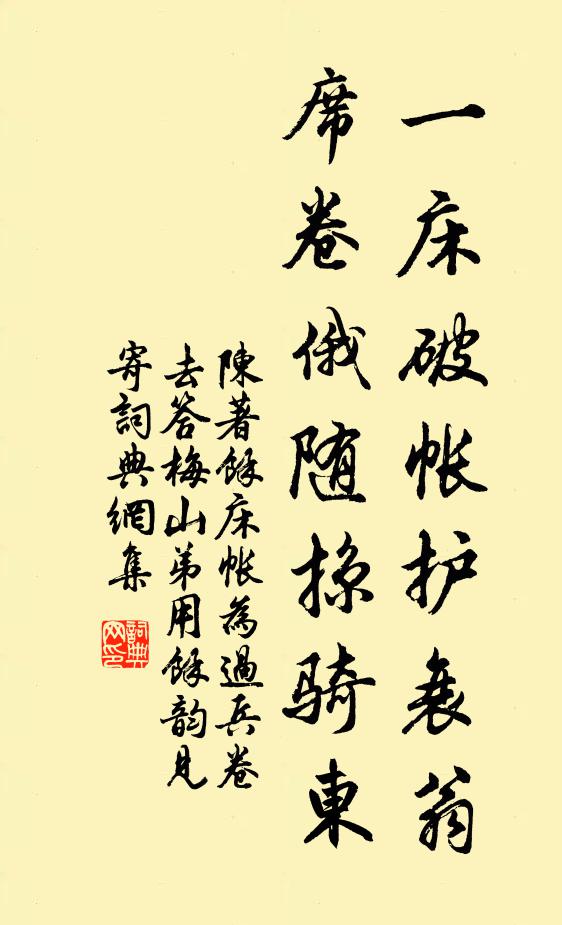 一床破帐护衰翁
席卷俄随掠骑東
陳著餘床帳為過兵卷
去答梅山弟用餘韵见
寄詞典網集
詞典网印